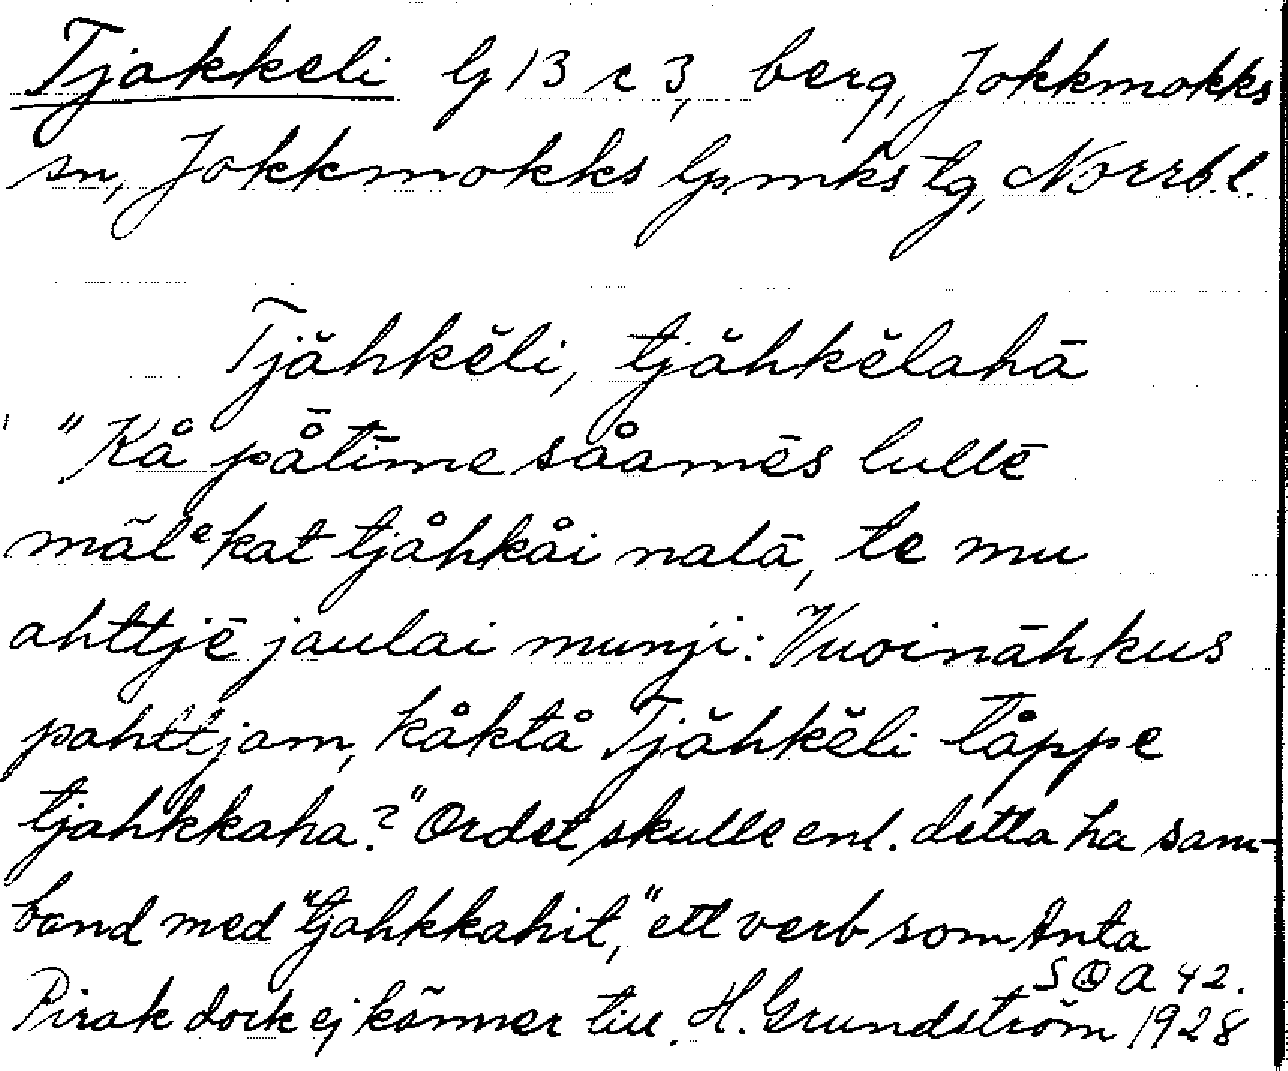 Tjakkeli G 13 c 3, berg, Jokkmokks
sn, Jokkmokks lpmks tg, Norrb. l.
Tjåhkěli, tjåhkělahā
"Kå pā̊tīme såamēs lullē
mālᵉkat tjåhkåi nalā, te mu
ahttjē jaulai munji: Vuoināhkus
pahttjam, kåktå Tjåhkěli tåppe
tjahkkaha?" Ordet skulle enl. detta ha sam-
band med "tjahkkahit," ett verb som Anta
Pirak dock ej känner till. H. Grundström 1928
SOA 42.